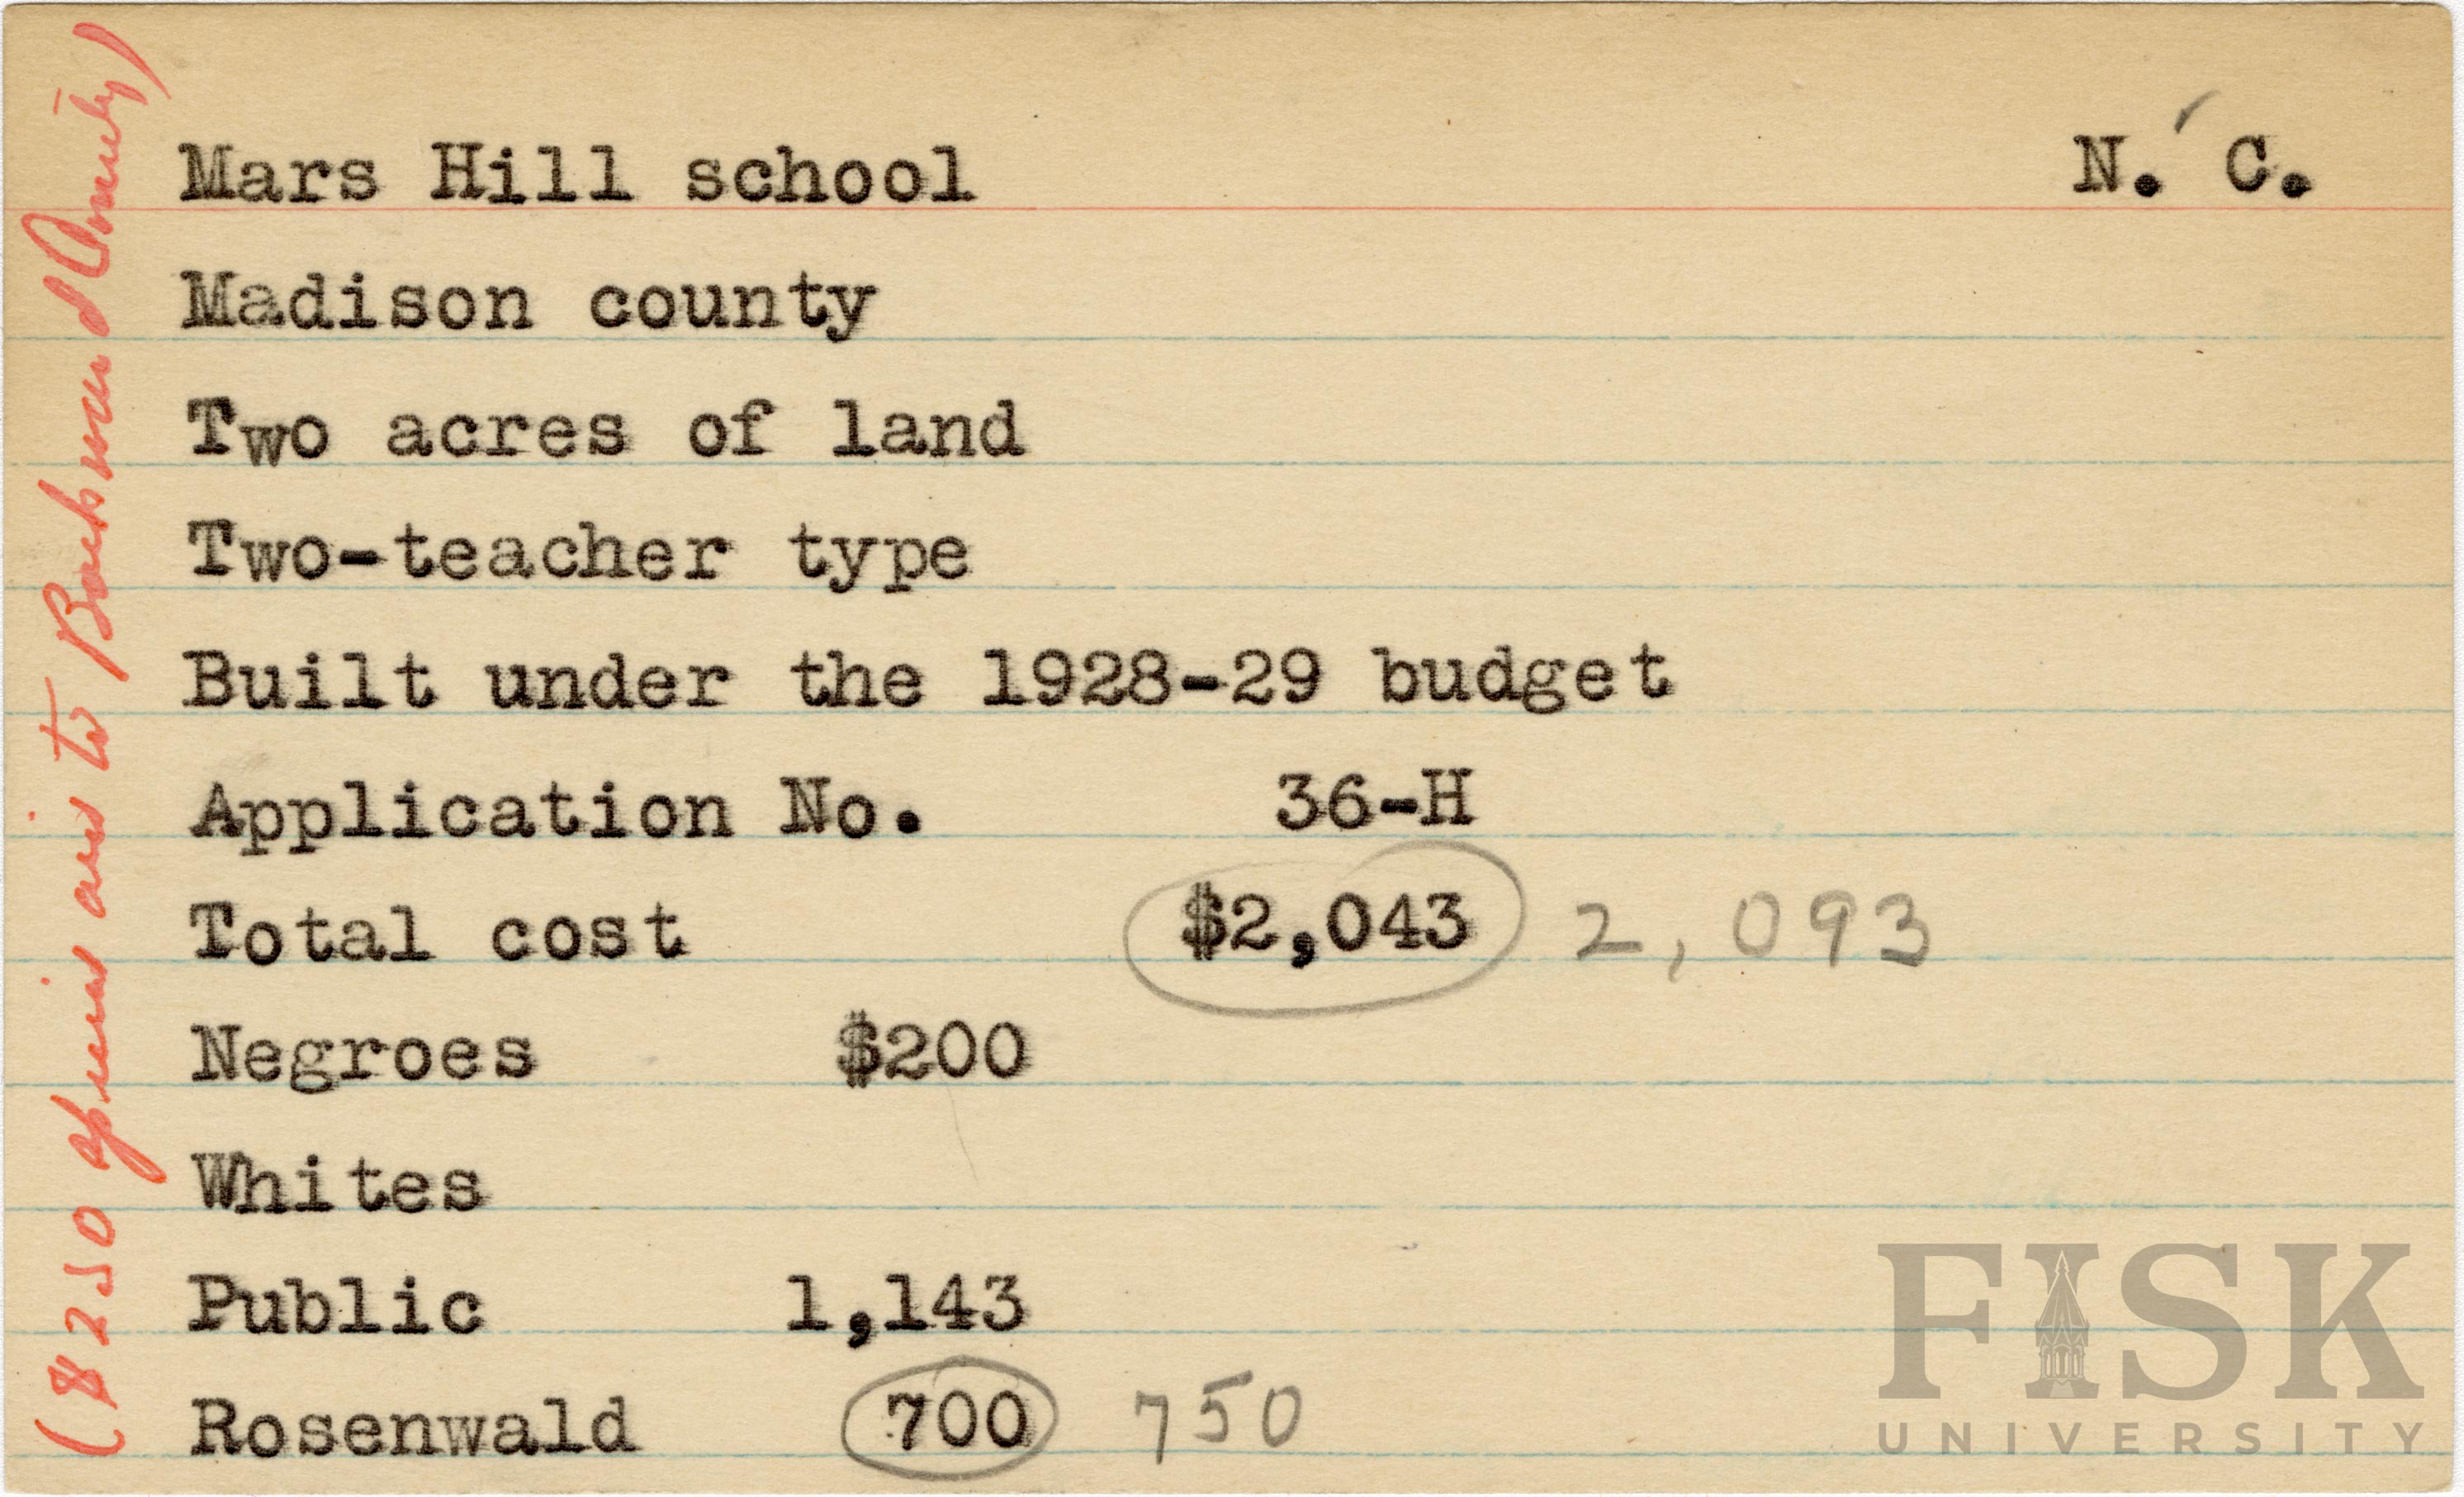 Mars Hill school N. C.
Madison county
Two acres of land
Two-teacher type
Built under the 1928-29 budget
Application No. 36-H
Total cost $2,043 2,093
Negroes $200
Whites
Public 1,143
Rosenwald 700 750
($250 special aid to Backward County)
FISK
UNIVERSITY